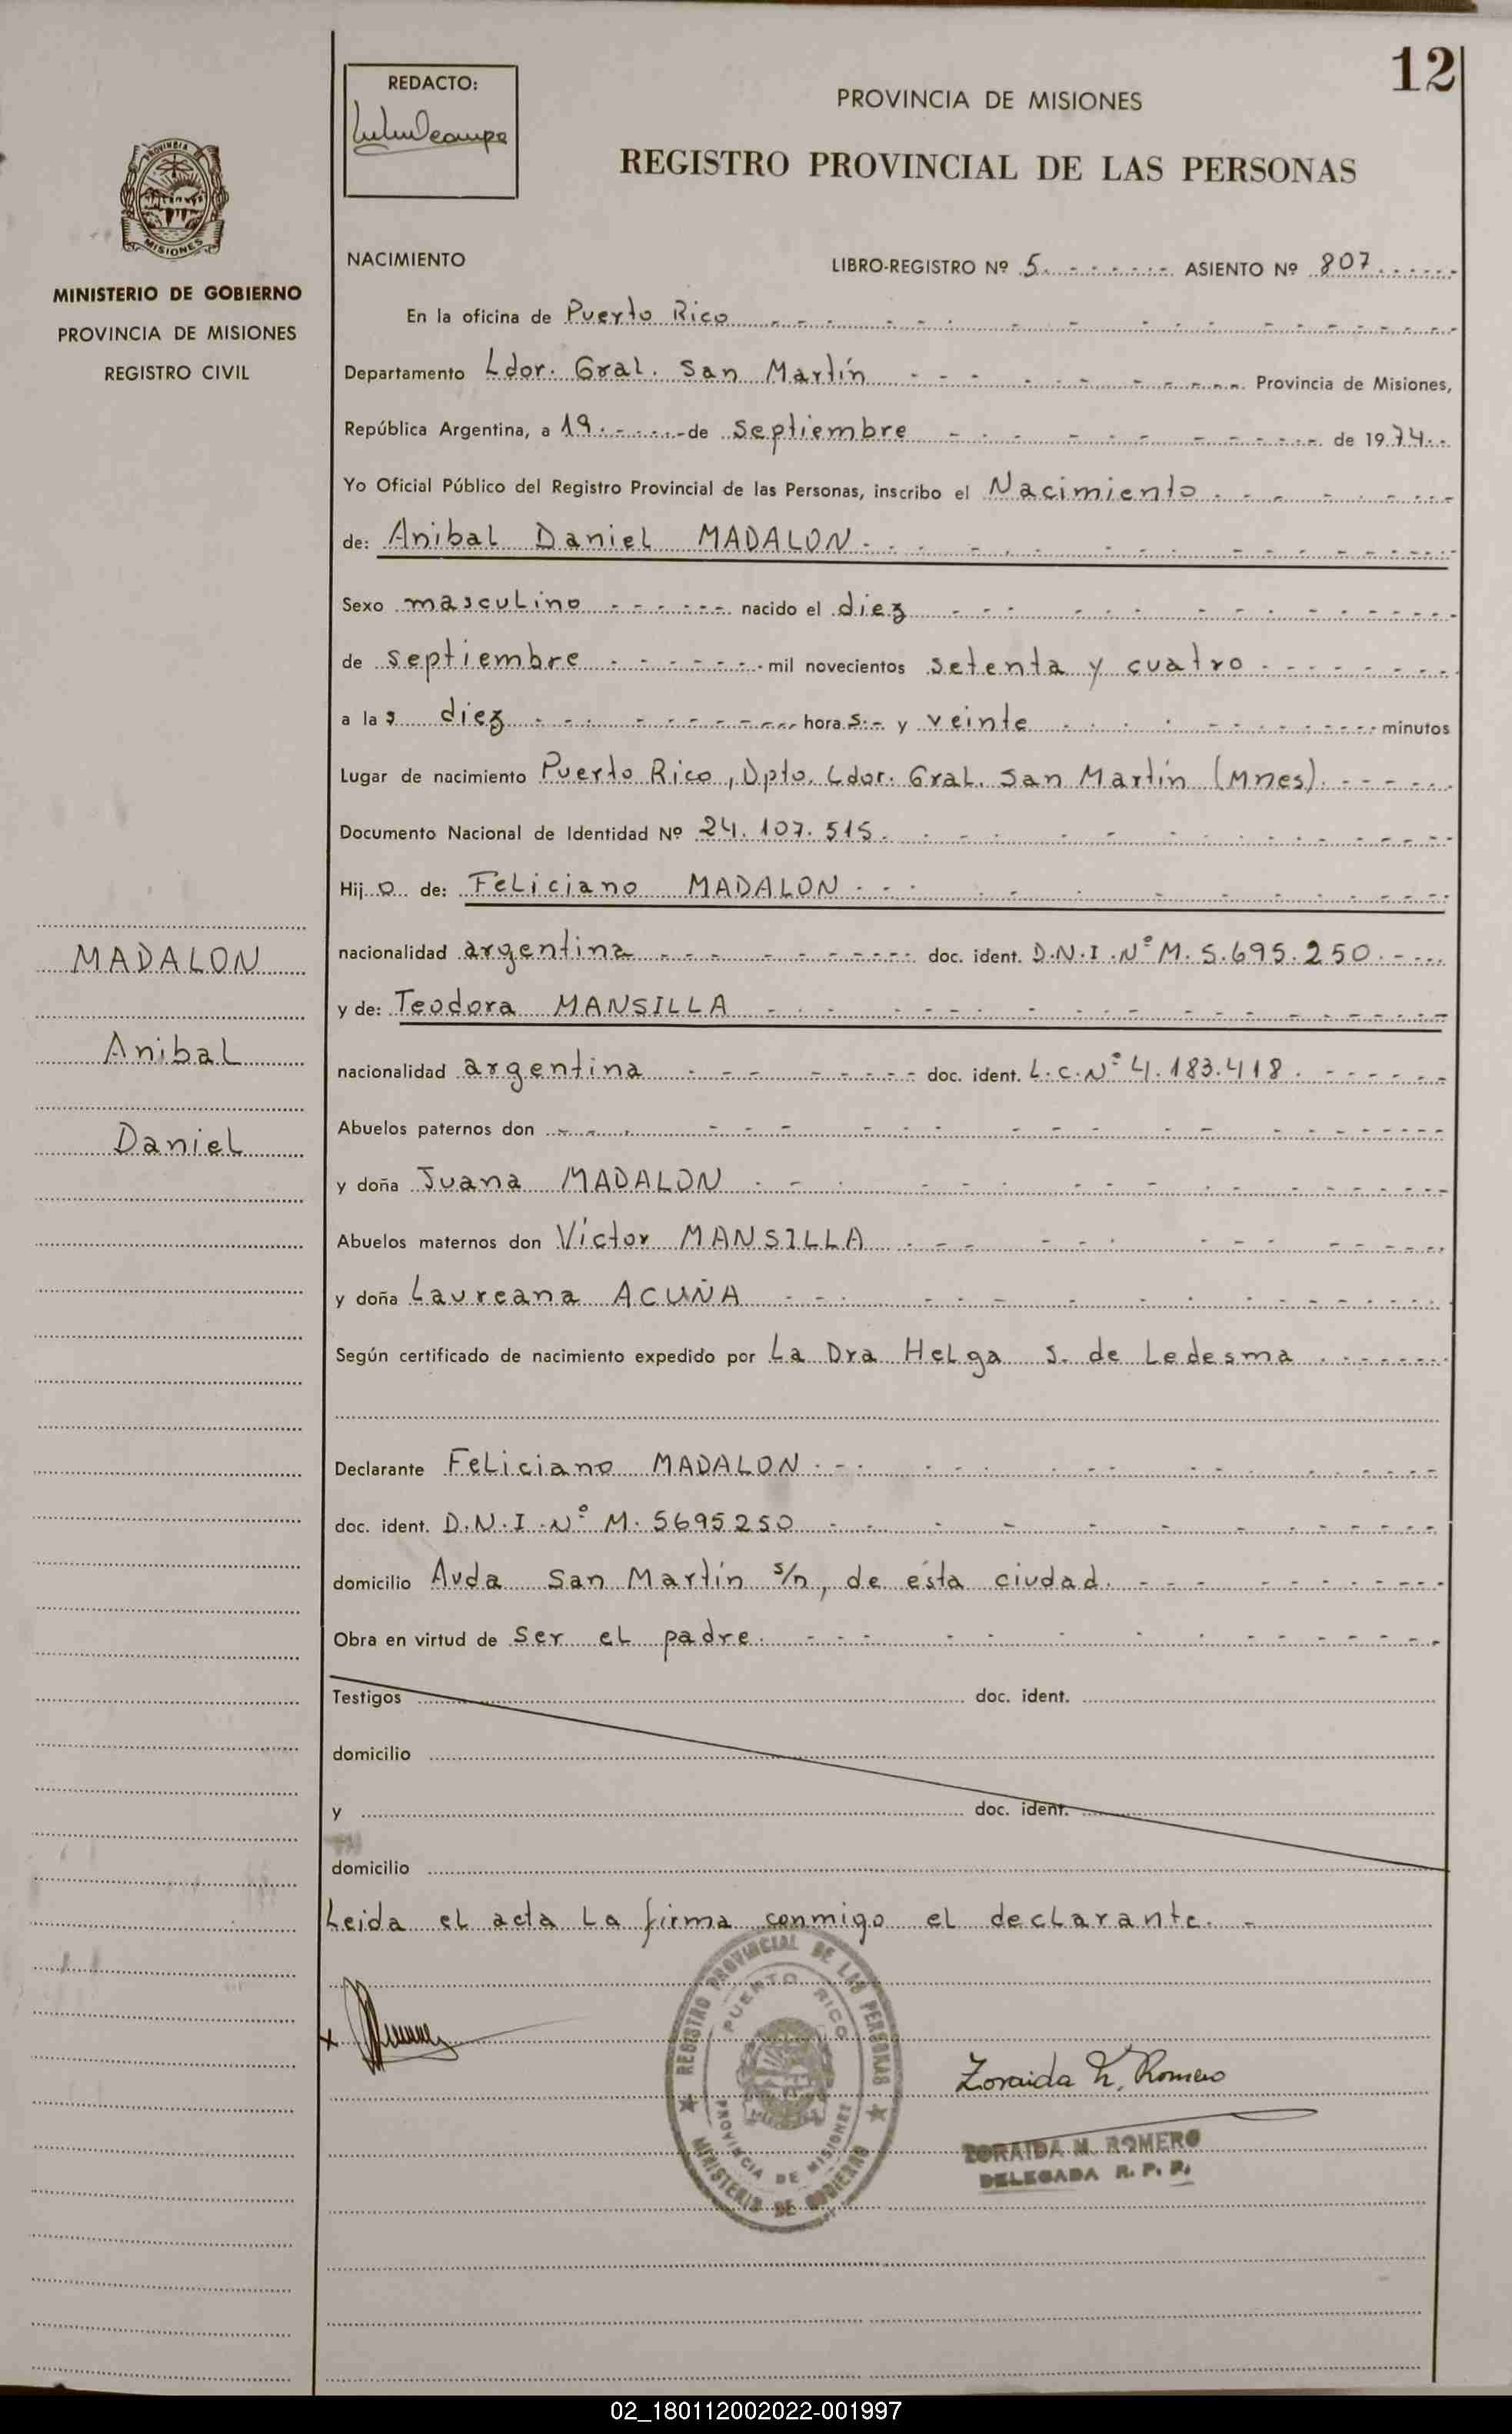 12
REDACTO:
PROVINCIA DE MISIONES
REGISTRO PROVINCIAL DE LAS PERSONAS
PROVINCIA
MISIONES
MINISTERIO DE GOBIERNO
PROVINCIA DE MISIONES
REGISTRO CIVIL
NACIMIENTO LIBRO-REGISTRO Nº 5. ASIENTO Nº 807
En la oficina de Puerto Rico
Departamento Ldor. Gral. San Martín Provincia de Misiones,
República Argentina, a 19 de Septiembre de 1974
Yo Oficial Público del Registro Provincial de las Personas, inscribo el Nacimiento
de: Anibal Daniel MADALON
Sexo masculino nacido el diez
de septiembre mil novecientos setenta y cuatro
a las diez horas y veinte minutos
Lugar de nacimiento Puerto Rico, Dpto. Ldor. Gral. San Martín (Mnes).
Documento Nacional de Identidad Nº 24.107.515.
Hijo de: Feliciano MADALON
nacionalidad argentina doc. ident. D.N.I.Nº M. 5.695.250.
y de: Teodora MANSILLA
nacionalidad argentina doc. ident. L.C.Nº 4.183.418.
Abuelos paternos don
y doña Juana MADALON
Abuelos maternos don Víctor MANSILLA
y doña Laureana ACUÑA
Según certificado de nacimiento expedido por La Dra Helga S. de Ledesma
Declarante Feliciano MADALON
doc. ident. D.N.I.Nº M. 5695250
domicilio Avda San Martín s/n, de ésta ciudad.
Obra en virtud de ser el padre.
Testigos doc. ident.
domicilio
y doc. ident.
domicilio
Leida el acta la firma conmigo el declarante.
MADALON
Anibal
Daniel
REGISTRO PROVINCIAL DE LAS PERSONAS
PUERTO RICO
PROVINCIA DE MISIONES
MINISTERIO DE GOBIERNO
x
Zoraida N. Romero
ZORAIDA N. ROMERO
DELEGADA R. P. P.
02_180112002022-001997